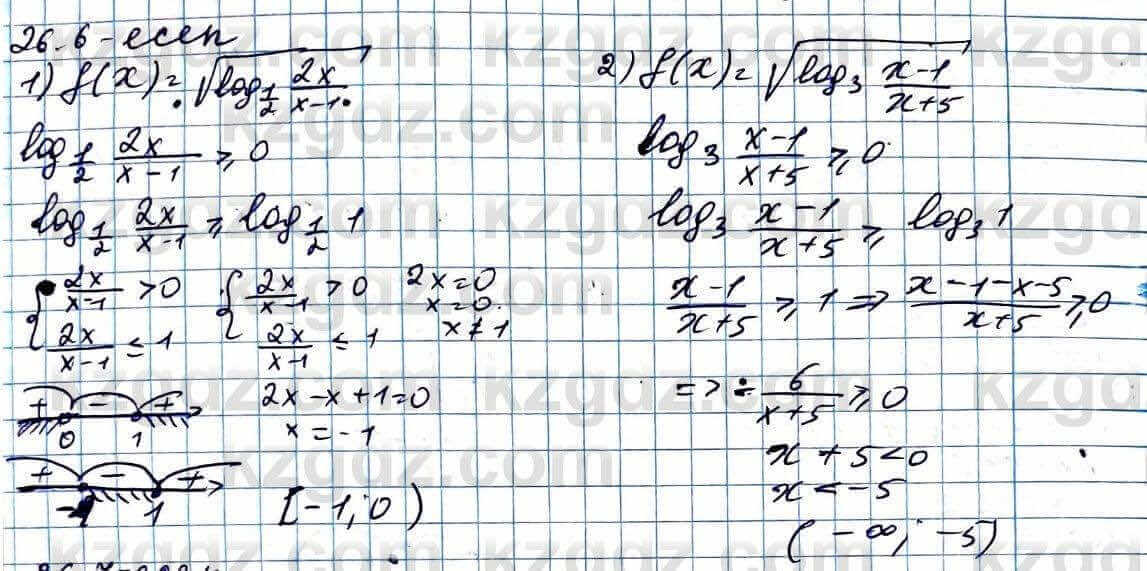 26.6-есеп
1) f(x)=√(log_{1/2} 2x/(x-1))
log_{1/2} 2x/(x-1) ≥ 0
log_{1/2} 2x/(x-1) ≥ log_{1/2} 1
{ 2x/(x-1) > 0
2x/(x-1) ≤ 1
{ 2x/(x-1) > 0
2x/(x-1) ≤ 1
2x=0
x=0
x≠1
+ - +
0 1
2x-x+1=0
x=-1
+ - +
1
[-1; 0)
2) f(x)=√(log_3 (x-1)/(x+5))
log_3 (x-1)/(x+5) ≥ 0
log_3 (x-1)/(x+5) ≥ log_3 1
(x-1)/(x+5) ≥ 1 => (x-1-x-5)/(x+5) ≥ 0
=> -6/(x+5) ≥ 0
x+5<0
x<-5
(-∞; -5)
kzgdz.com